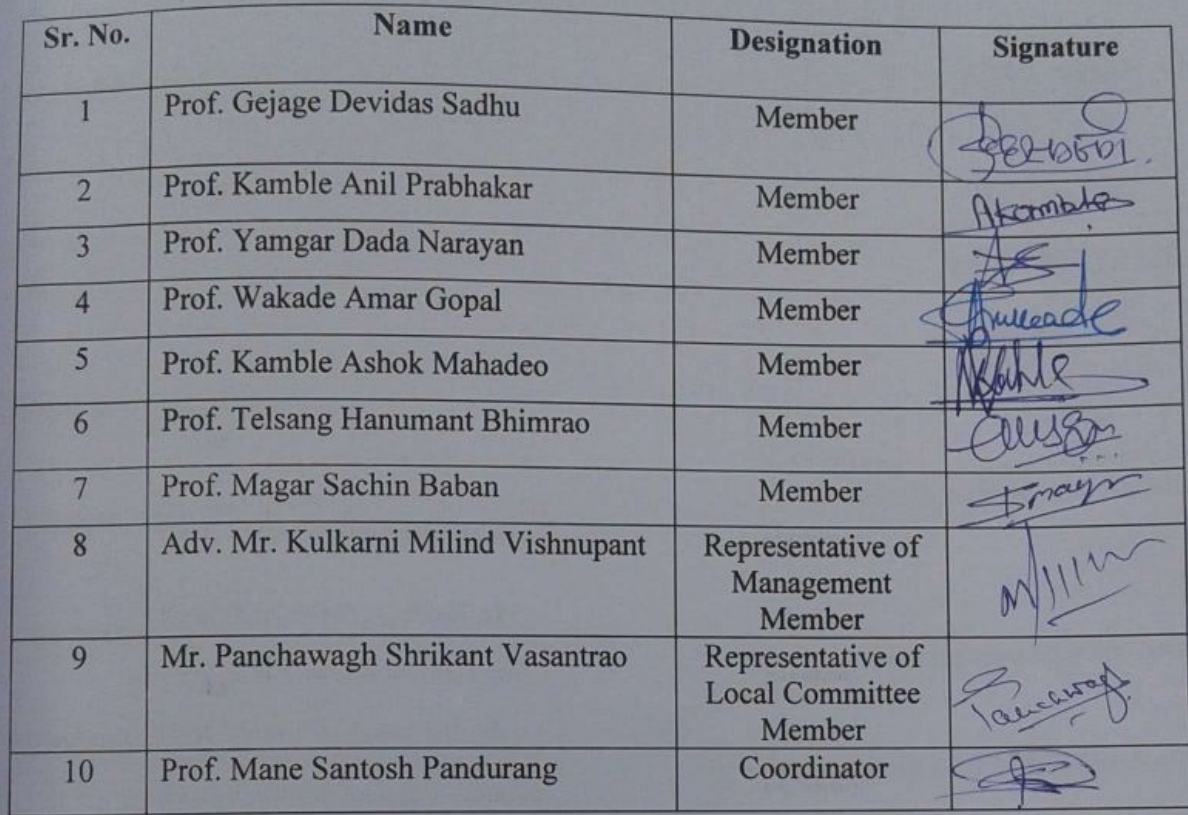 Sr. No. Name Designation Signature
1 Prof. Gejage Devidas Sadhu Member
2 Prof. Kamble Anil Prabhakar Member Akamble
3 Prof. Yamgar Dada Narayan Member
4 Prof. Wakade Amar Gopal Member
5 Prof. Kamble Ashok Mahadeo Member
6 Prof. Telsang Hanumant Bhimrao Member
7 Prof. Magar Sachin Baban Member
8 Adv. Mr. Kulkarni Milind Vishnupant Representative of
Management
Member
9 Mr. Panchawagh Shrikant Vasantrao Representative of
Local Committee
Member
10 Prof. Mane Santosh Pandurang Coordinator